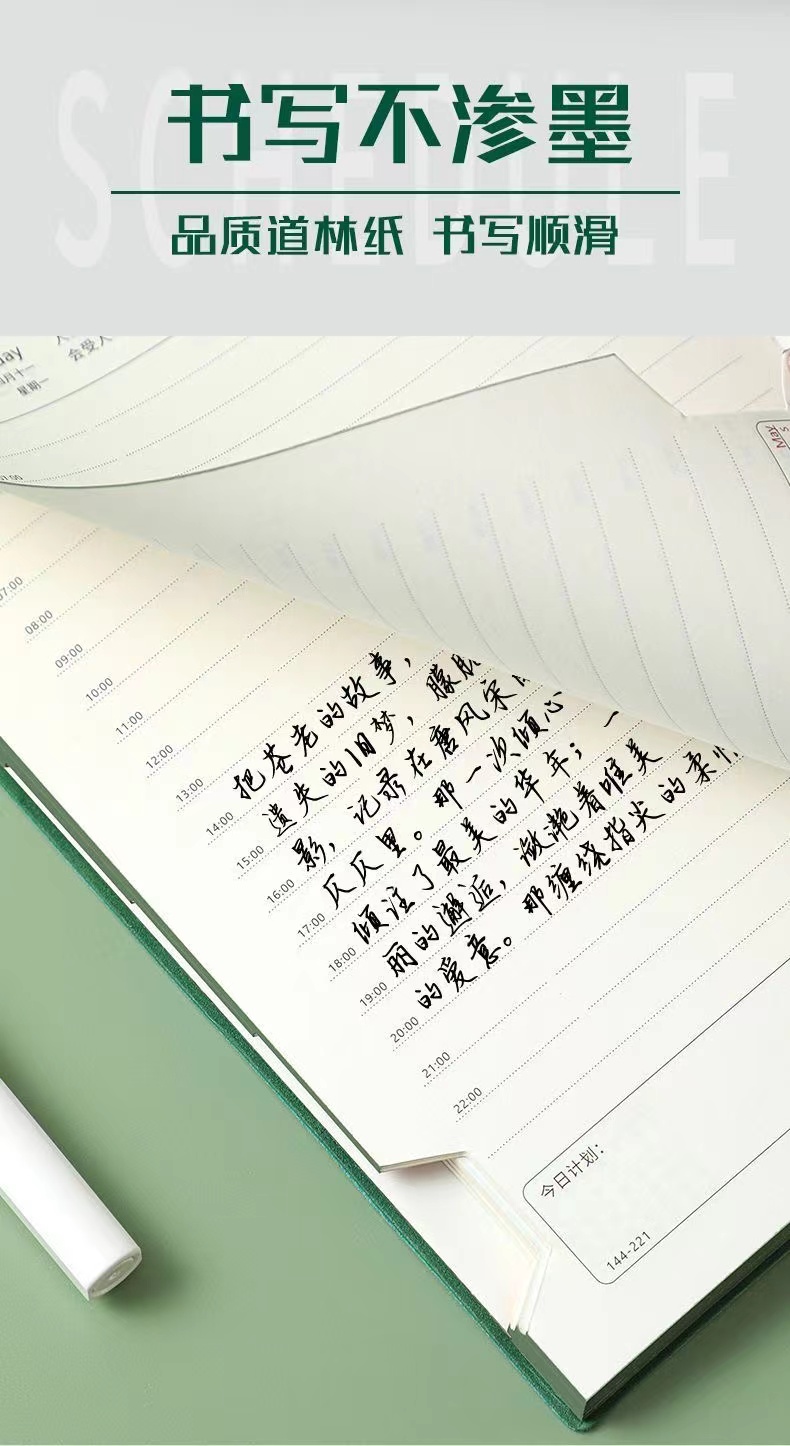 SCHEDULE
书写不渗墨
品质道林纸 书写顺滑
星期一
会受人
May
5
07:00
07:00
08:00
09:00
10:00
11:00
12:00
13:00
14:00
15:00
16:00
17:00
18:00
19:00
20:00
21:00
22:00
把苍老的故事，
遗失的旧梦，朦胧
影，记录在唐风宋
仄仄里。那一次倾心
倾注了最美的华年；一
丽的邂逅，潋滟着唯美
的爱意。那缠绕指尖的柔情
今日计划：
144-221